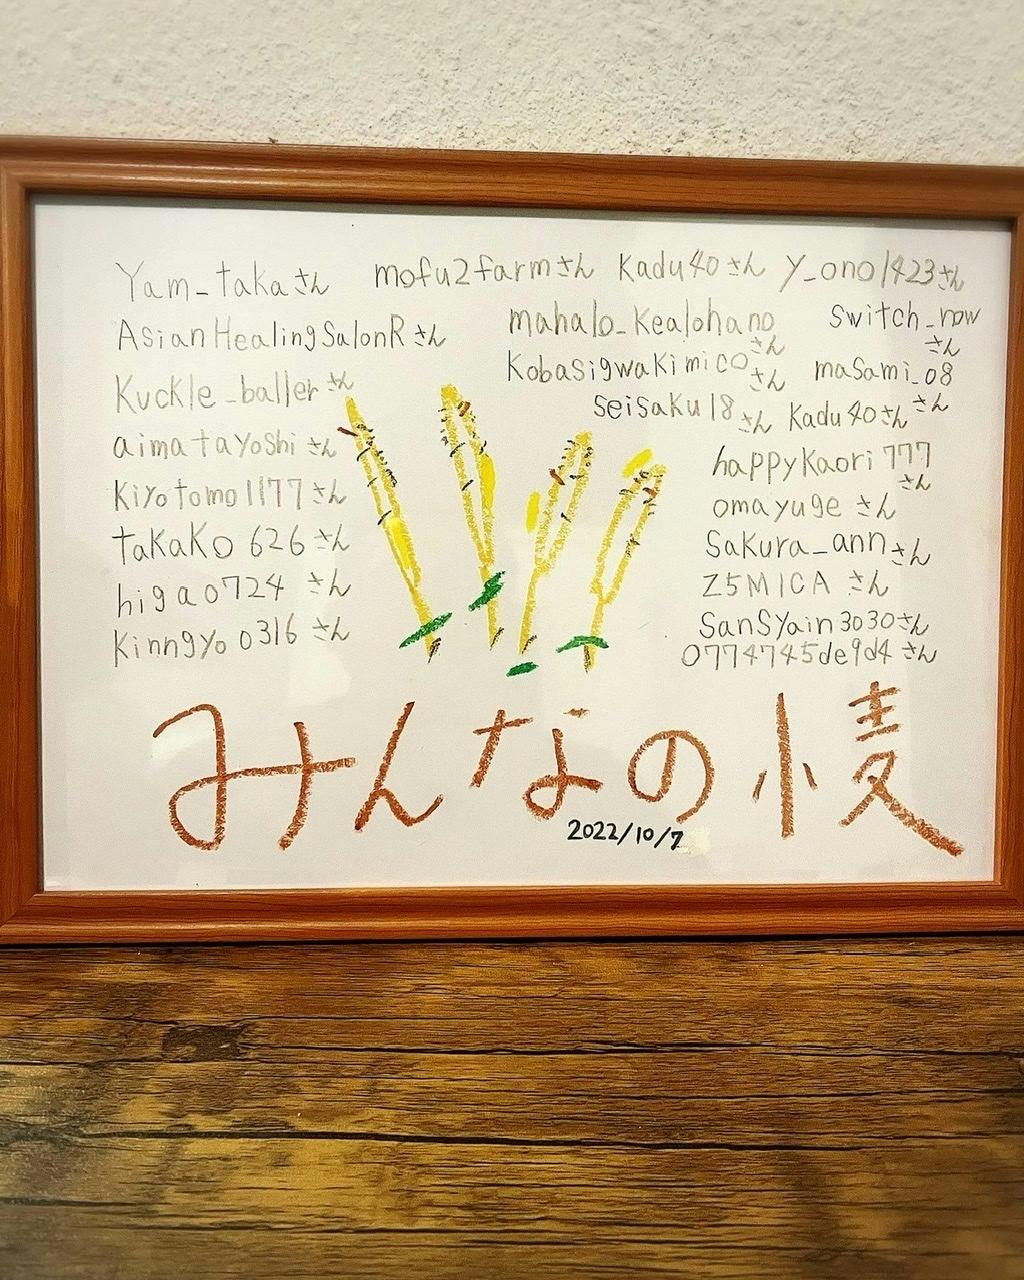 Yam_takaさん mofu2farmさん Kadu40さん y_ono1423さん
AsianHealingSalonRさん mahalo_Kealohanoさん switch_nowさん
Kuckle_ballerさん KobasigwaKimicoさん maSami_08さん
seisaku18さん Kadu40さん
aimatayoshiさん happyKaori777さん
Kiyotomo1177さん omayugeさん
taKaKo626さん Sakura_annさん
higa0724さん Z5MICAさん
Kinngyo0316さん SanSyain3030さん
0774745de9d4さん
みんなの
2022/10/7